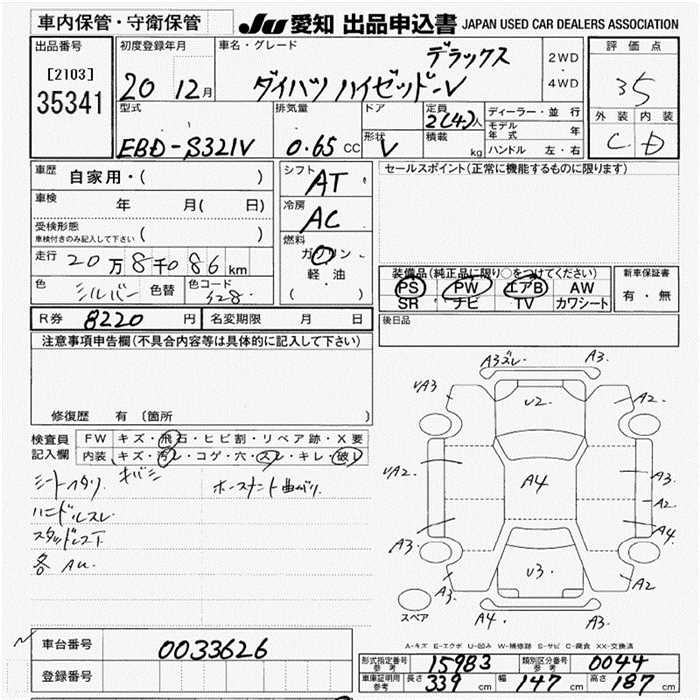 車内保管・守衛保管
JU 愛知 出品申込書 JAPAN USED CAR DEALERS ASSOCIATION
出品番号
[2103]
35341
初度登録年月
20 12月
車名・グレード
デラックス
ダイハツ ハイゼットV
2WD
・
4WD
評価点
35
外装 内装
C D
型式
EBD-S321V
排気量
0.65 CC
ドア
形状
V
定員
2(4)人
積載
kg
ディーラー・並行
モデル年式 年
ハンドル 左・右
車歴
自家用・( )
車検
年 月( 日)
受検形態
車検付きのみ記入して下さい
( )
走行 20万8千086km
色 シルバー 色替 色コード S28
シフト
AT
冷房
AC
燃料
ガソリン
・
軽油
( )
セールスポイント(正常に機能するものに限ります)
装備品(純正品に限り○をつけてください)
PS PW エアB AW
SR ナビ TV カワシート
新車保証書
有・無
後日品
R券 8220 円 名変期限 月 日
注意事項申告欄(不具合内容等は具体的に記入して下さい)
修復歴 有 〔箇所 〕
検査員
記入欄
FW キズ・飛石・ヒビ割・リペア跡・X要
内装 キズ・汚レ・コゲ・穴・スレ・キレ・破レ
シートヘタリ キバミ ホースメント曲がり
ハンドルスレ
スタッドレスT
各 AU
A3ズレ A3
VA3 V2 A2
VA2 A4 A3
A2
A4
A3 V3 A2
スペア A4 A3
A-キズ E-エクボ U-凹み W-補修跡 S-サビ C-腐食 XX-交換済
車台番号 0033626
登録番号
形式指定番号 参考 15983 類別区分番号 参考 0044
車庫証明用 参考 長さ 339 cm 幅 147 cm 高さ 187 cm